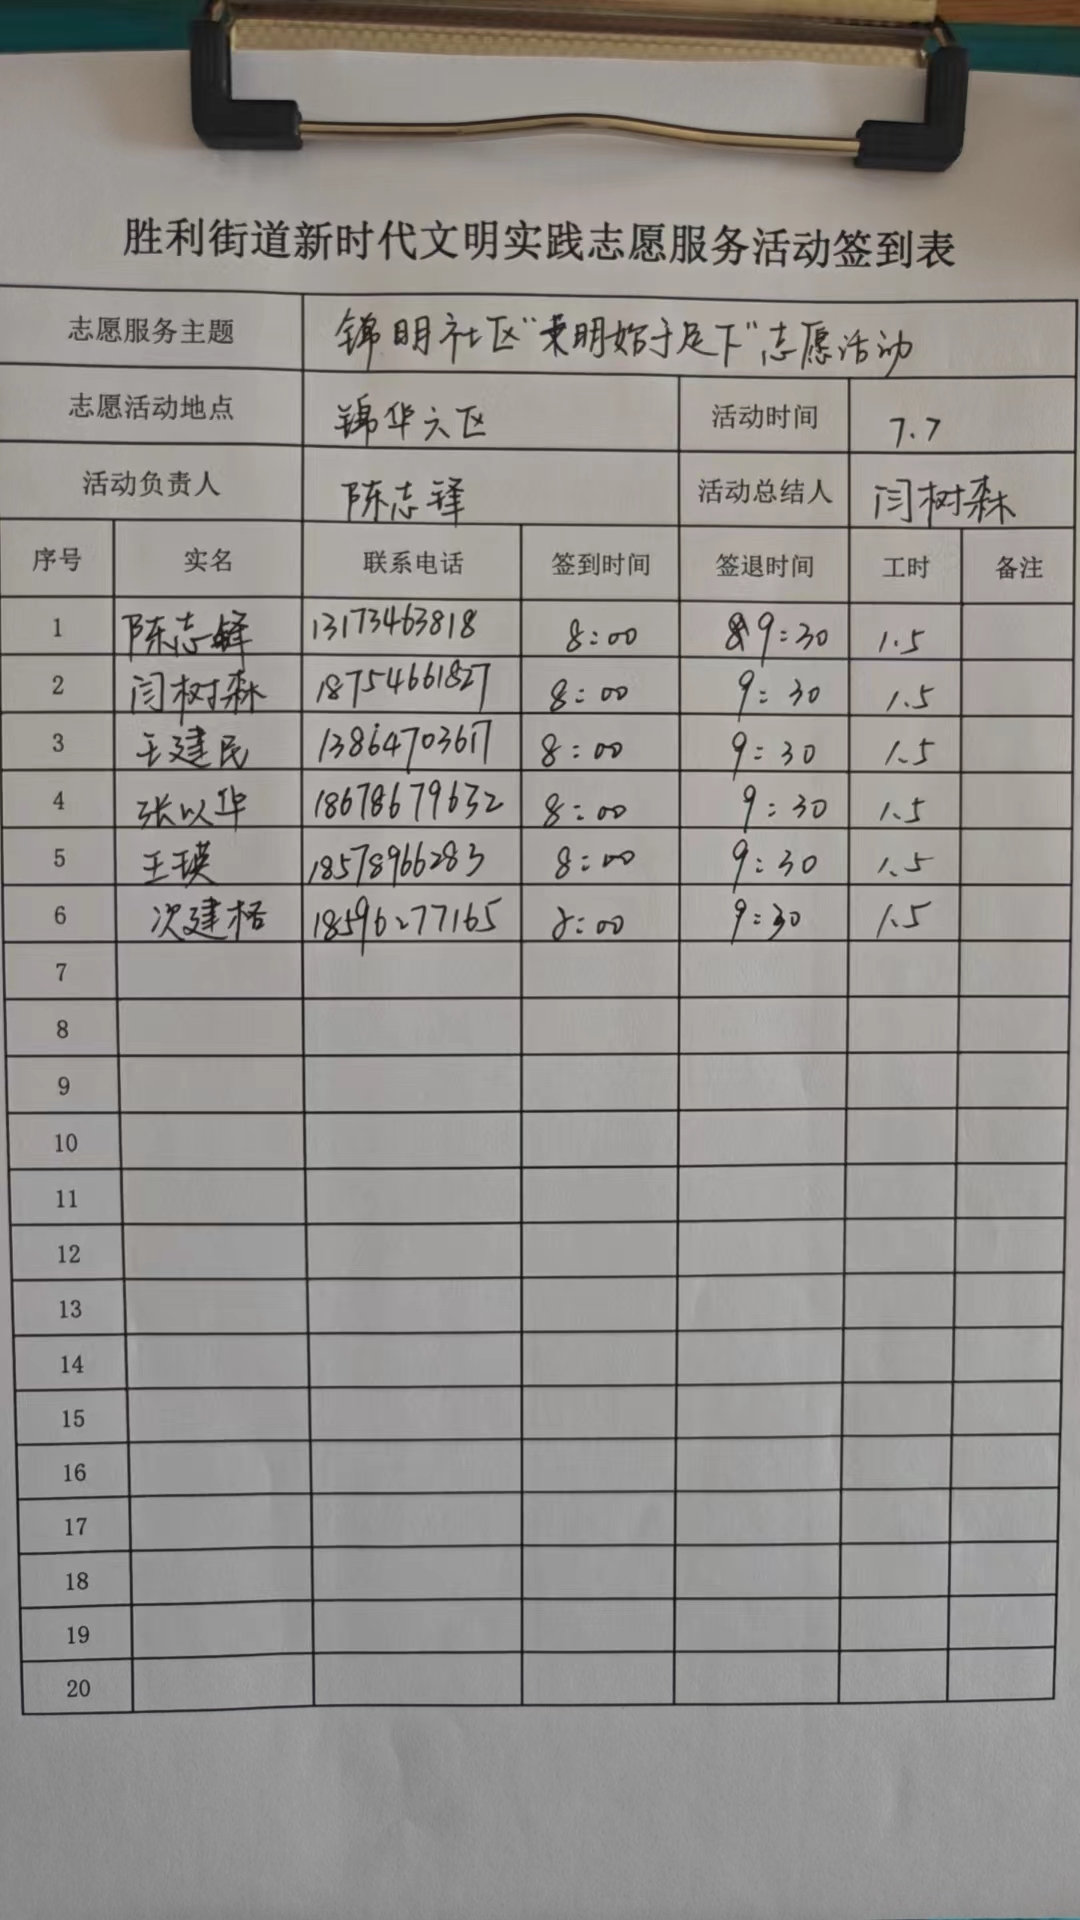 胜利街道新时代文明实践志愿服务活动签到表
志愿服务主题 锦明社区“文明始于足下”志愿活动
志愿活动地点 锦华六区 活动时间 7.7
活动负责人 陈志铎 活动总结人 闫树森
序号 实名 联系电话 签到时间 签退时间 工时 备注
1 陈志铎 13173463818 8:00 9:30 1.5
2 闫树森 18754661827 8:00 9:30 1.5
3 王建民 13864703617 8:00 9:30 1.5
4 张以华 18678679632 8:00 9:30 1.5
5 王瑛 18578966283 8:00 9:30 1.5
6 次建格 18596277165 8:00 9:30 1.5
7
8
9
10
11
12
13
14
15
16
17
18
19
20